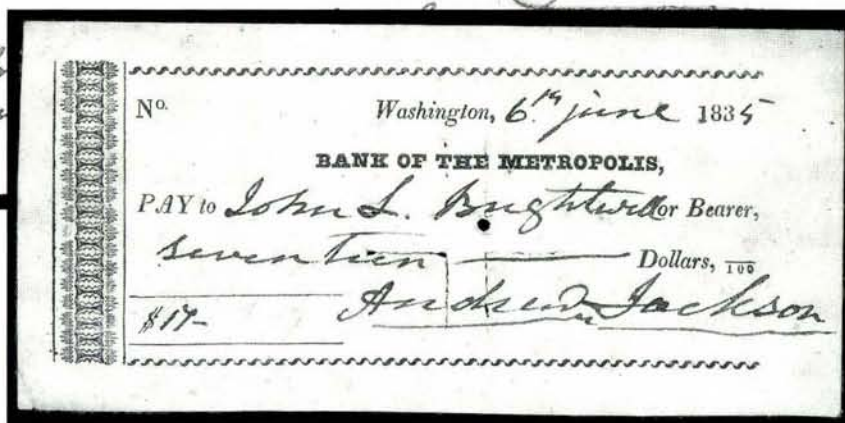 No. Washington, 6.th june 1835
BANK OF THE METROPOLIS,
PAY to John L. Brightwell or Bearer,
seventeen Dollars, 100
$17- Andrew Jackson